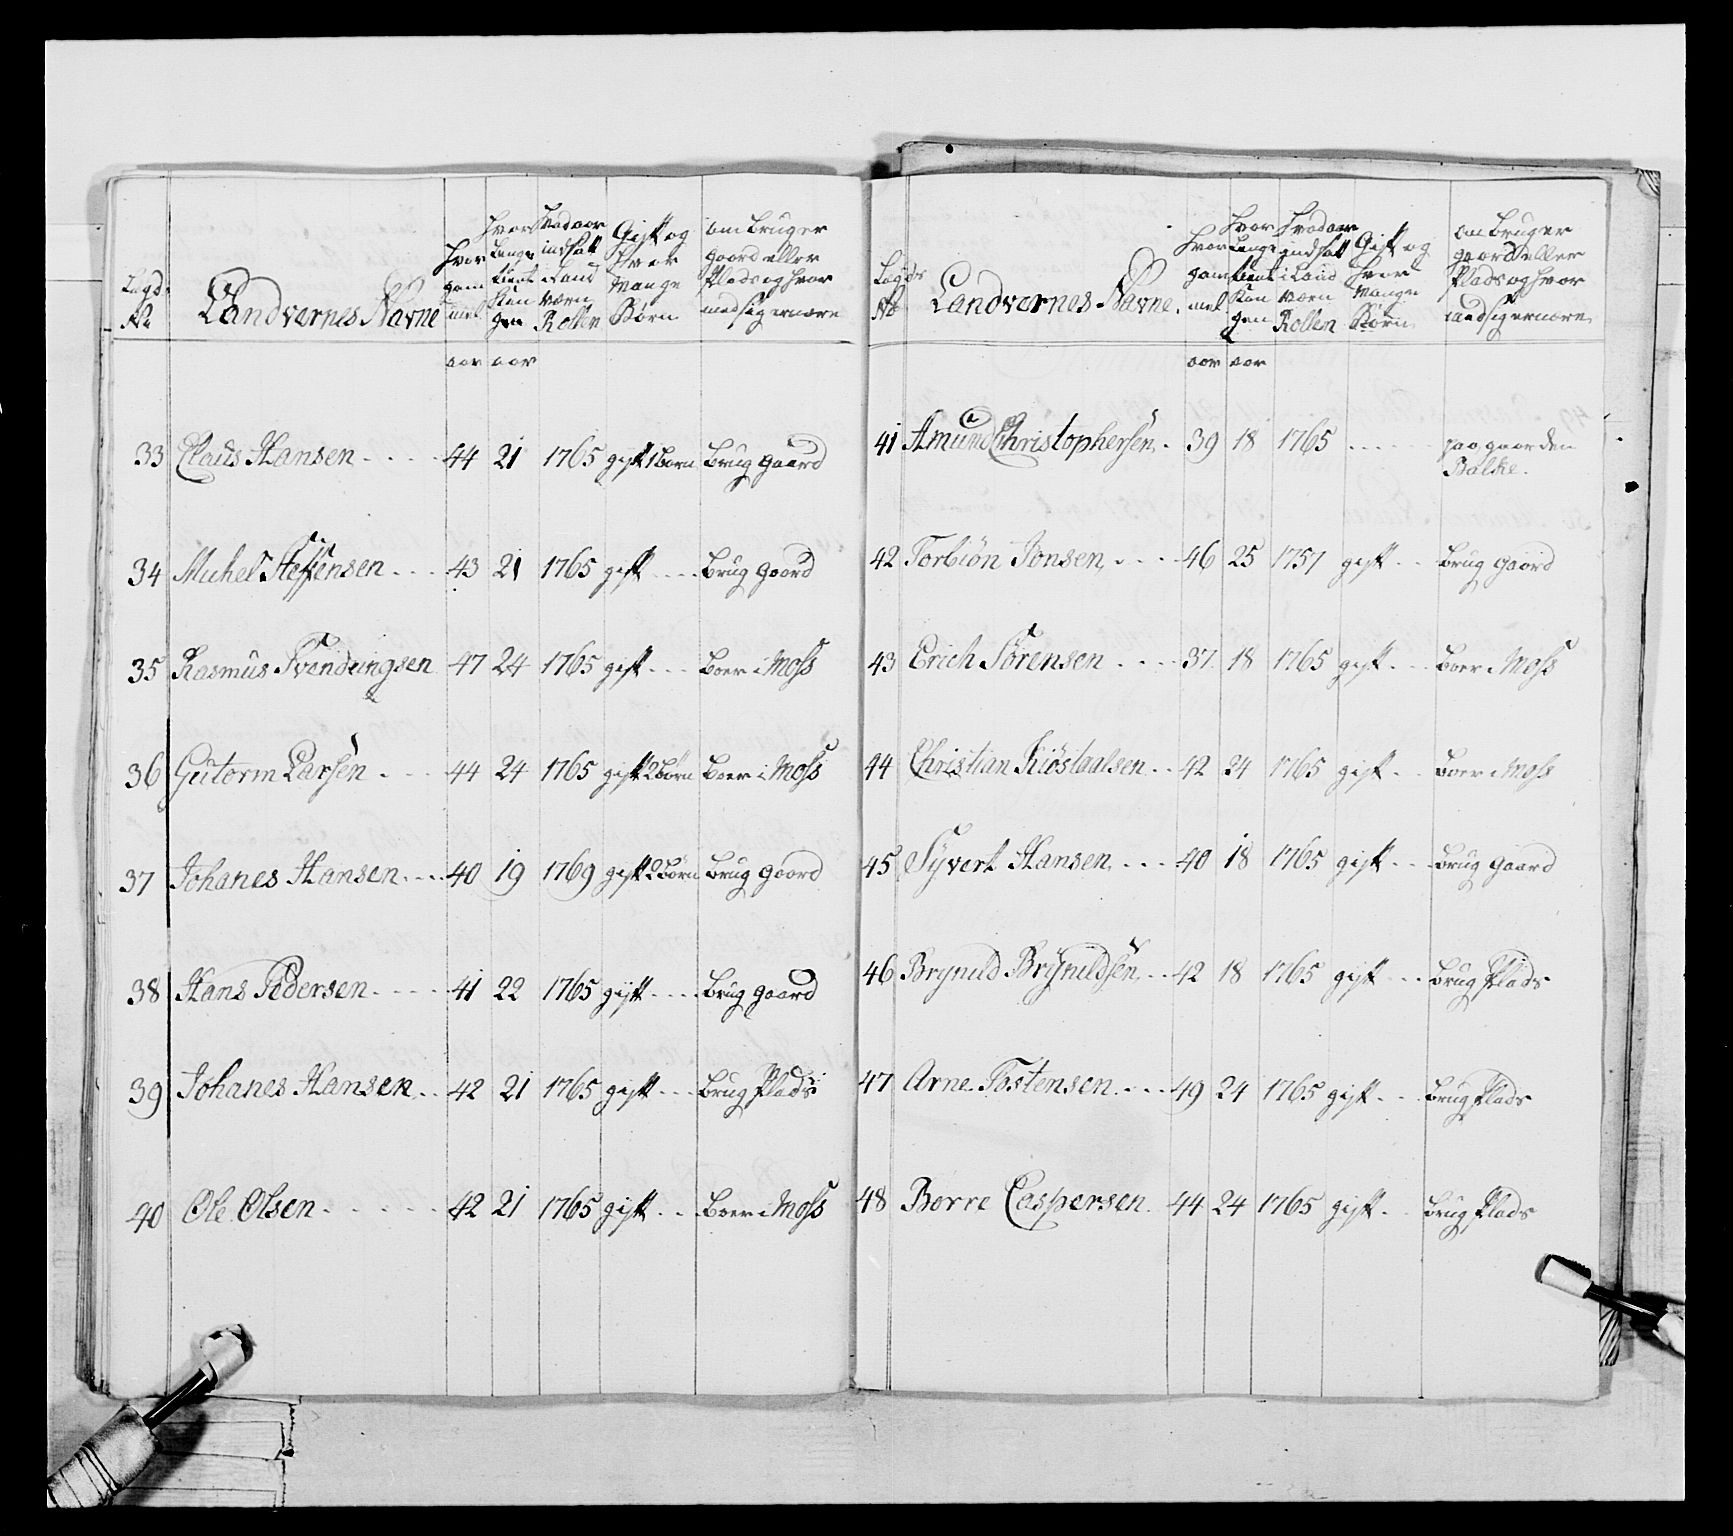 Lægds
No
Landvernes Navne
Hvor
gam
mel
Hvor
Længe
tient
Kon
gen
Hvad aar
indsatt
i Land
Værn
Rollen
Gift og
Hvor
Mange
Børn
om bruger
gaard eller
Plads og hvor
med sig ernære
aar aar
33 Claus Hansen - - - - 44 21 1765 gift 1 Børn Brug gaard
34 Michel Steffensen - - - 43 21 1765 gift - - - - Brug gaard
35 Rasmus Svendungsen 47 24 1765 gift - - - Boer i Moss
36 Gutorm Larsen - - - 44 24 1765 gift 2 Børn Boer i Moss
37 Johanes Hansen - - - 40 19 1769 gift 2 Børn Brug gaard
38 Hans Pedersen - - - - 41 22 1765 gift - - - - Brug gaard
39 Johanes Hansen - - 42 21 1765 gift - - - Brug Plads
40 Ole Olsen - - - - - 42 21 1765 gift - - Boer i Moss
Lægds
No
Landvernes Navne.
Hvor
gam
mel
Hvor
Længe
tient
Kon
gen
Hvad aar
indsatt
i Land
Værn
Rollen
Gift og
Hvor
Mange
Børn
om bruger
gaard eller
Plads og hvor
med sig ernære
aar aar
41 Amund Christophersen - 39 18 1765 - - - - paa gaarden
Balke.
42 Torbiön Jonsen - - - - 46 25 1757 gift - - Brug gaard
43 Erich Sörensen - - - - 37 18 1765 gift - - - Boer i Moss
44 Christian Kiöstaalsen - - 42 24 1765 gift - - Boer i Moss
45 Syvert Hansen - - - 40 18 1765 gift - - - Brug gaard
46 Brynild Brynildsen - - 42 18 1765 gift - - - Brug Plads
47 Arne Tostensen - - - 49 24 1765 gift - - - Brug Plads
48 Borre Caspersen 44 24 1765 gift - - Brug Plads